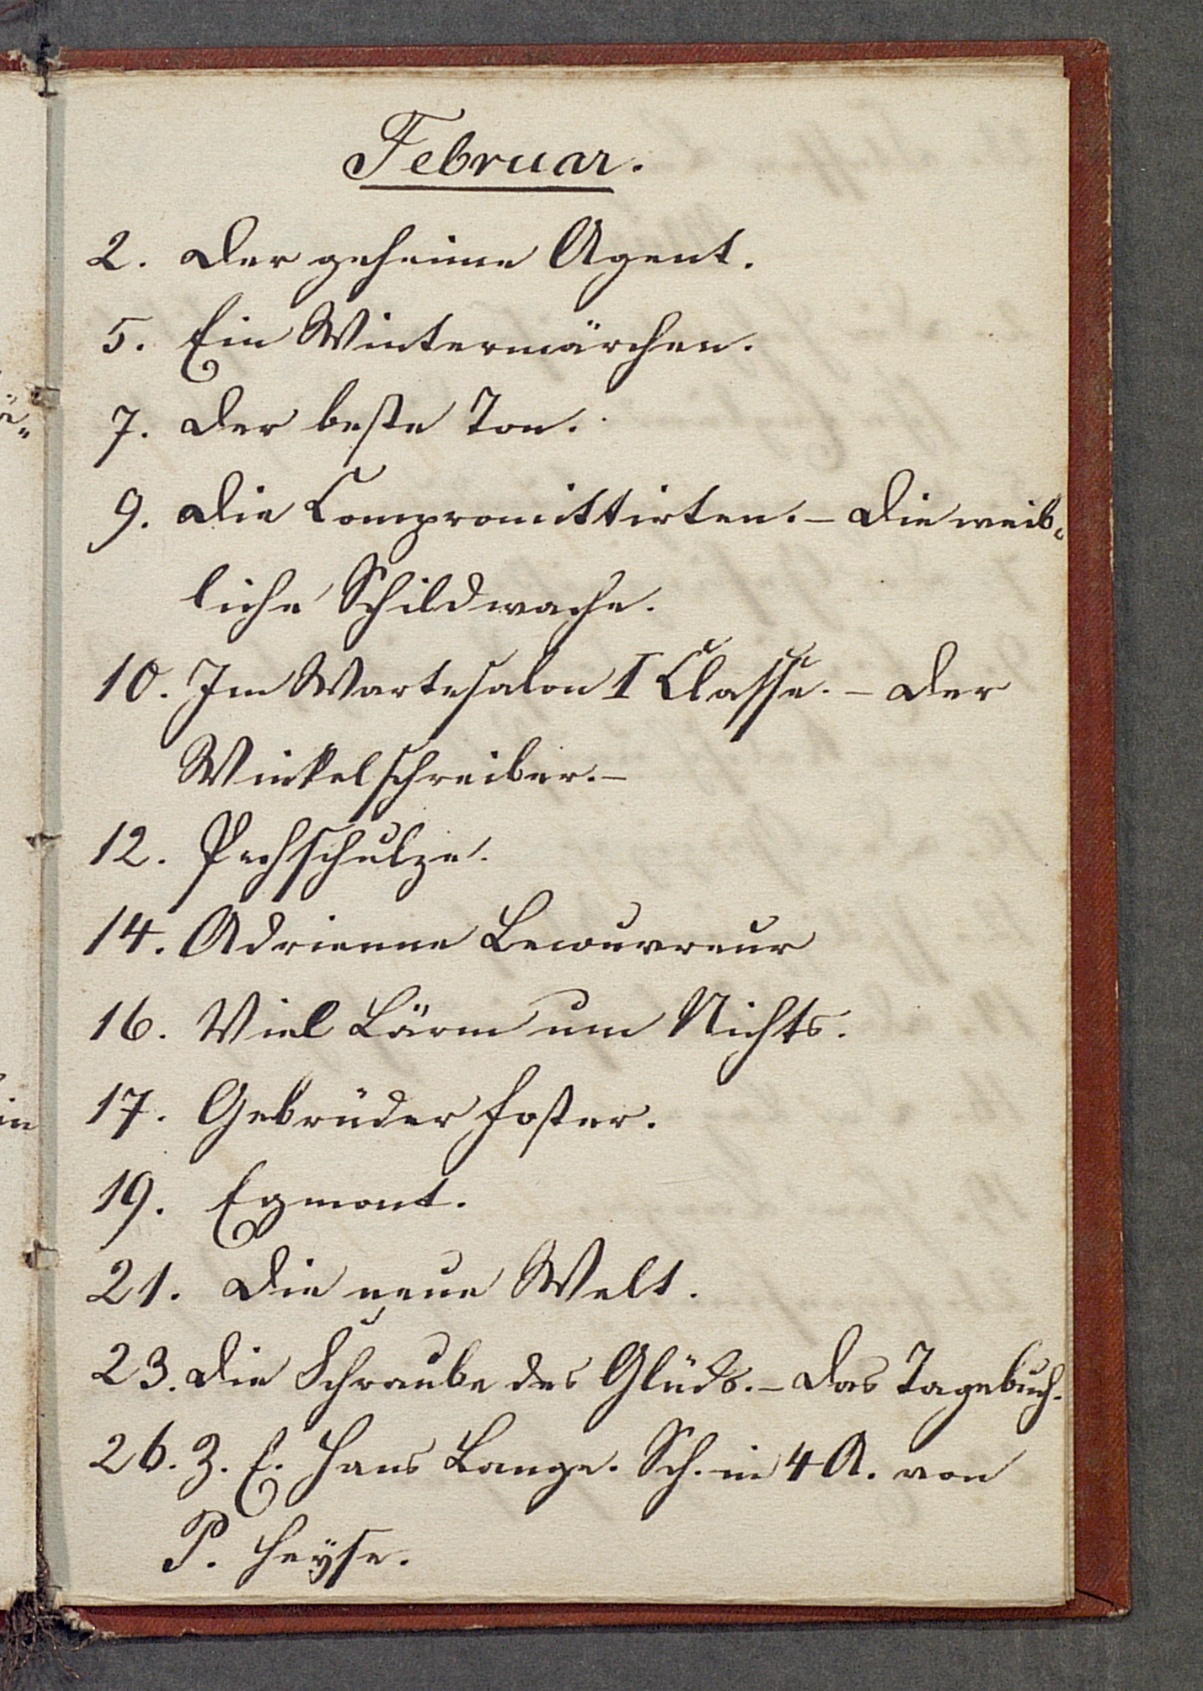 Februar.
2. Der geheime Agent.
5. Ein Wintermärchen.
7. Der beste Ton.
9. Die Compromittirten. – Die weib-
liche Schildwache.
10. Im Wartesalon I Classe. – Der
Winkelschreiber. –
12. Pechschulze.
14. Adrienne Lecouvreur
16. Viel Lärm um Nichts.
17. Gebrüder Foster.
19. Egmont.
21. Die neue Welt.
23. Die Schraube des Glücks. – Das Tagebuch.
26. Z. E. Hans Lange. Sch. in 4 A. von
P. Heyse.